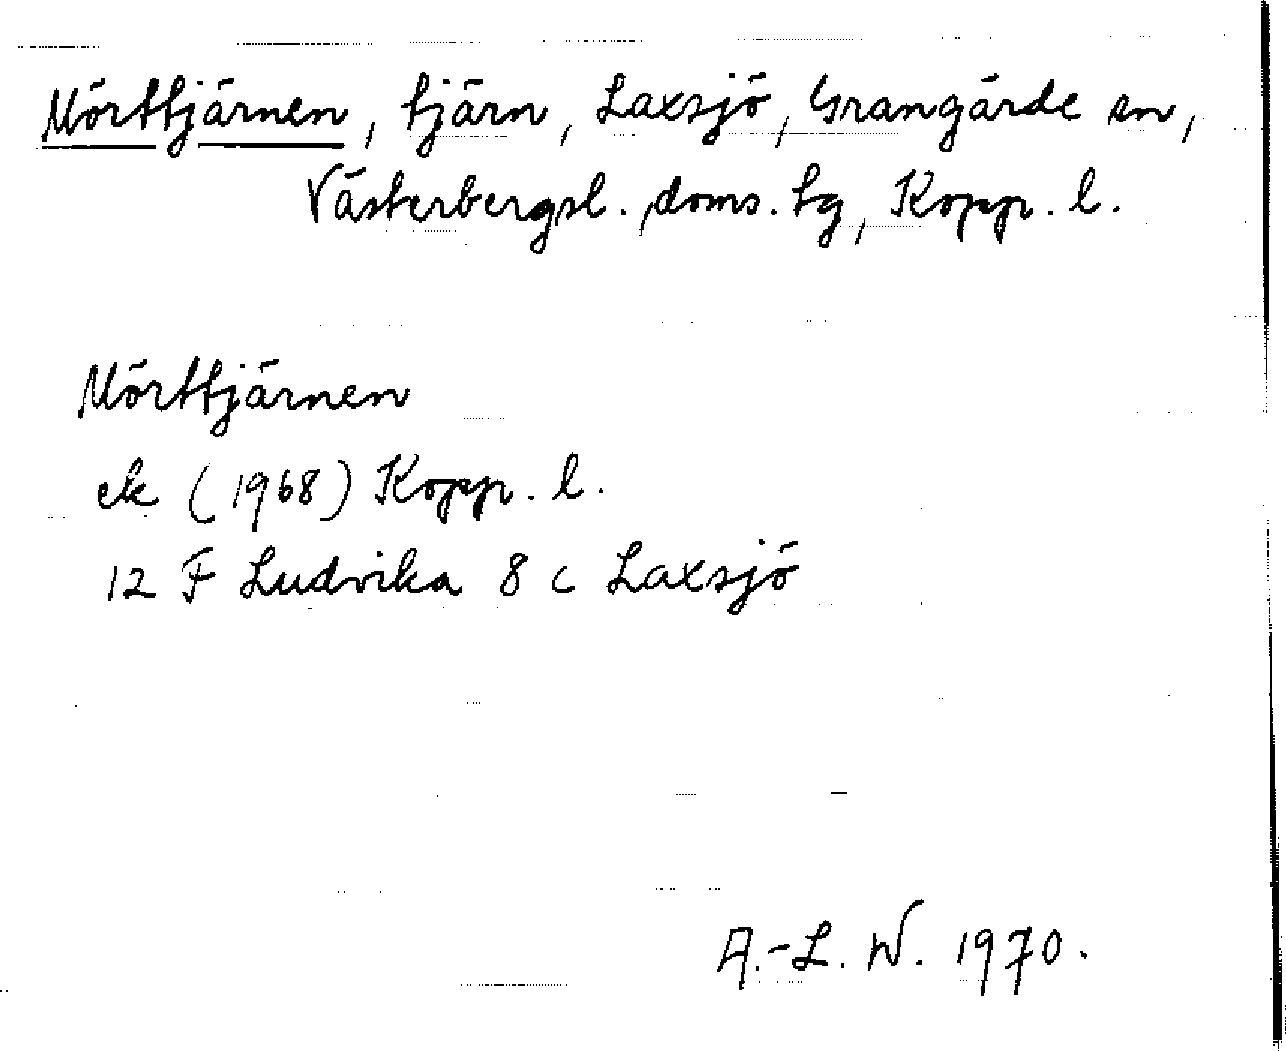 Mörttjärnen, tjärn, Laxsjö, Grangärde sn,
Västerbergsl. doms. tg, Kopp. l.
Mörttjärnen
ek (1968) Kopp. l.
12 F Ludvika 8 c Laxsjö
A.-L. W. 1970.